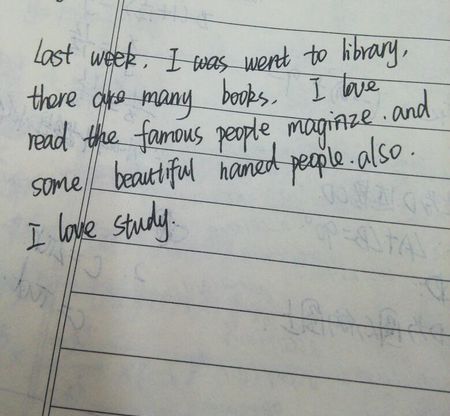 Last week. I was went to library,
there are many books. I love
read the famous people maginze. and
some beautiful hamed people. also.
I love study.